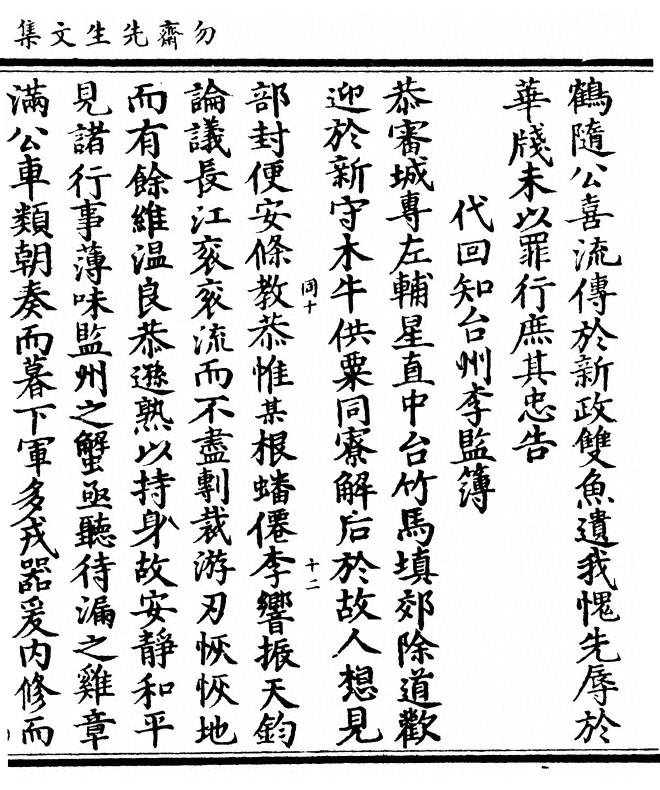 勿齋先生文集
鶴隨公喜流傳於新政雙魚遺我愧先辱於
華牋未以罪行庶其忠告
代回知台州李監簿
恭審城專左輔星直中台竹馬填郊除道歡
迎於新守木牛供粟同寮解后於故人想見
部封便安條教恭惟某根蟠僊李響振天鈞
同十
十二
論議長江袞袞流而不盡剸裁游刃恢恢地
而有餘維温良恭遜熟以持身故安靜和平
見諸行事薄味監州之蟹亟聽待漏之雞章
滿公車類朝奏而暮下軍多戎器爰内修而